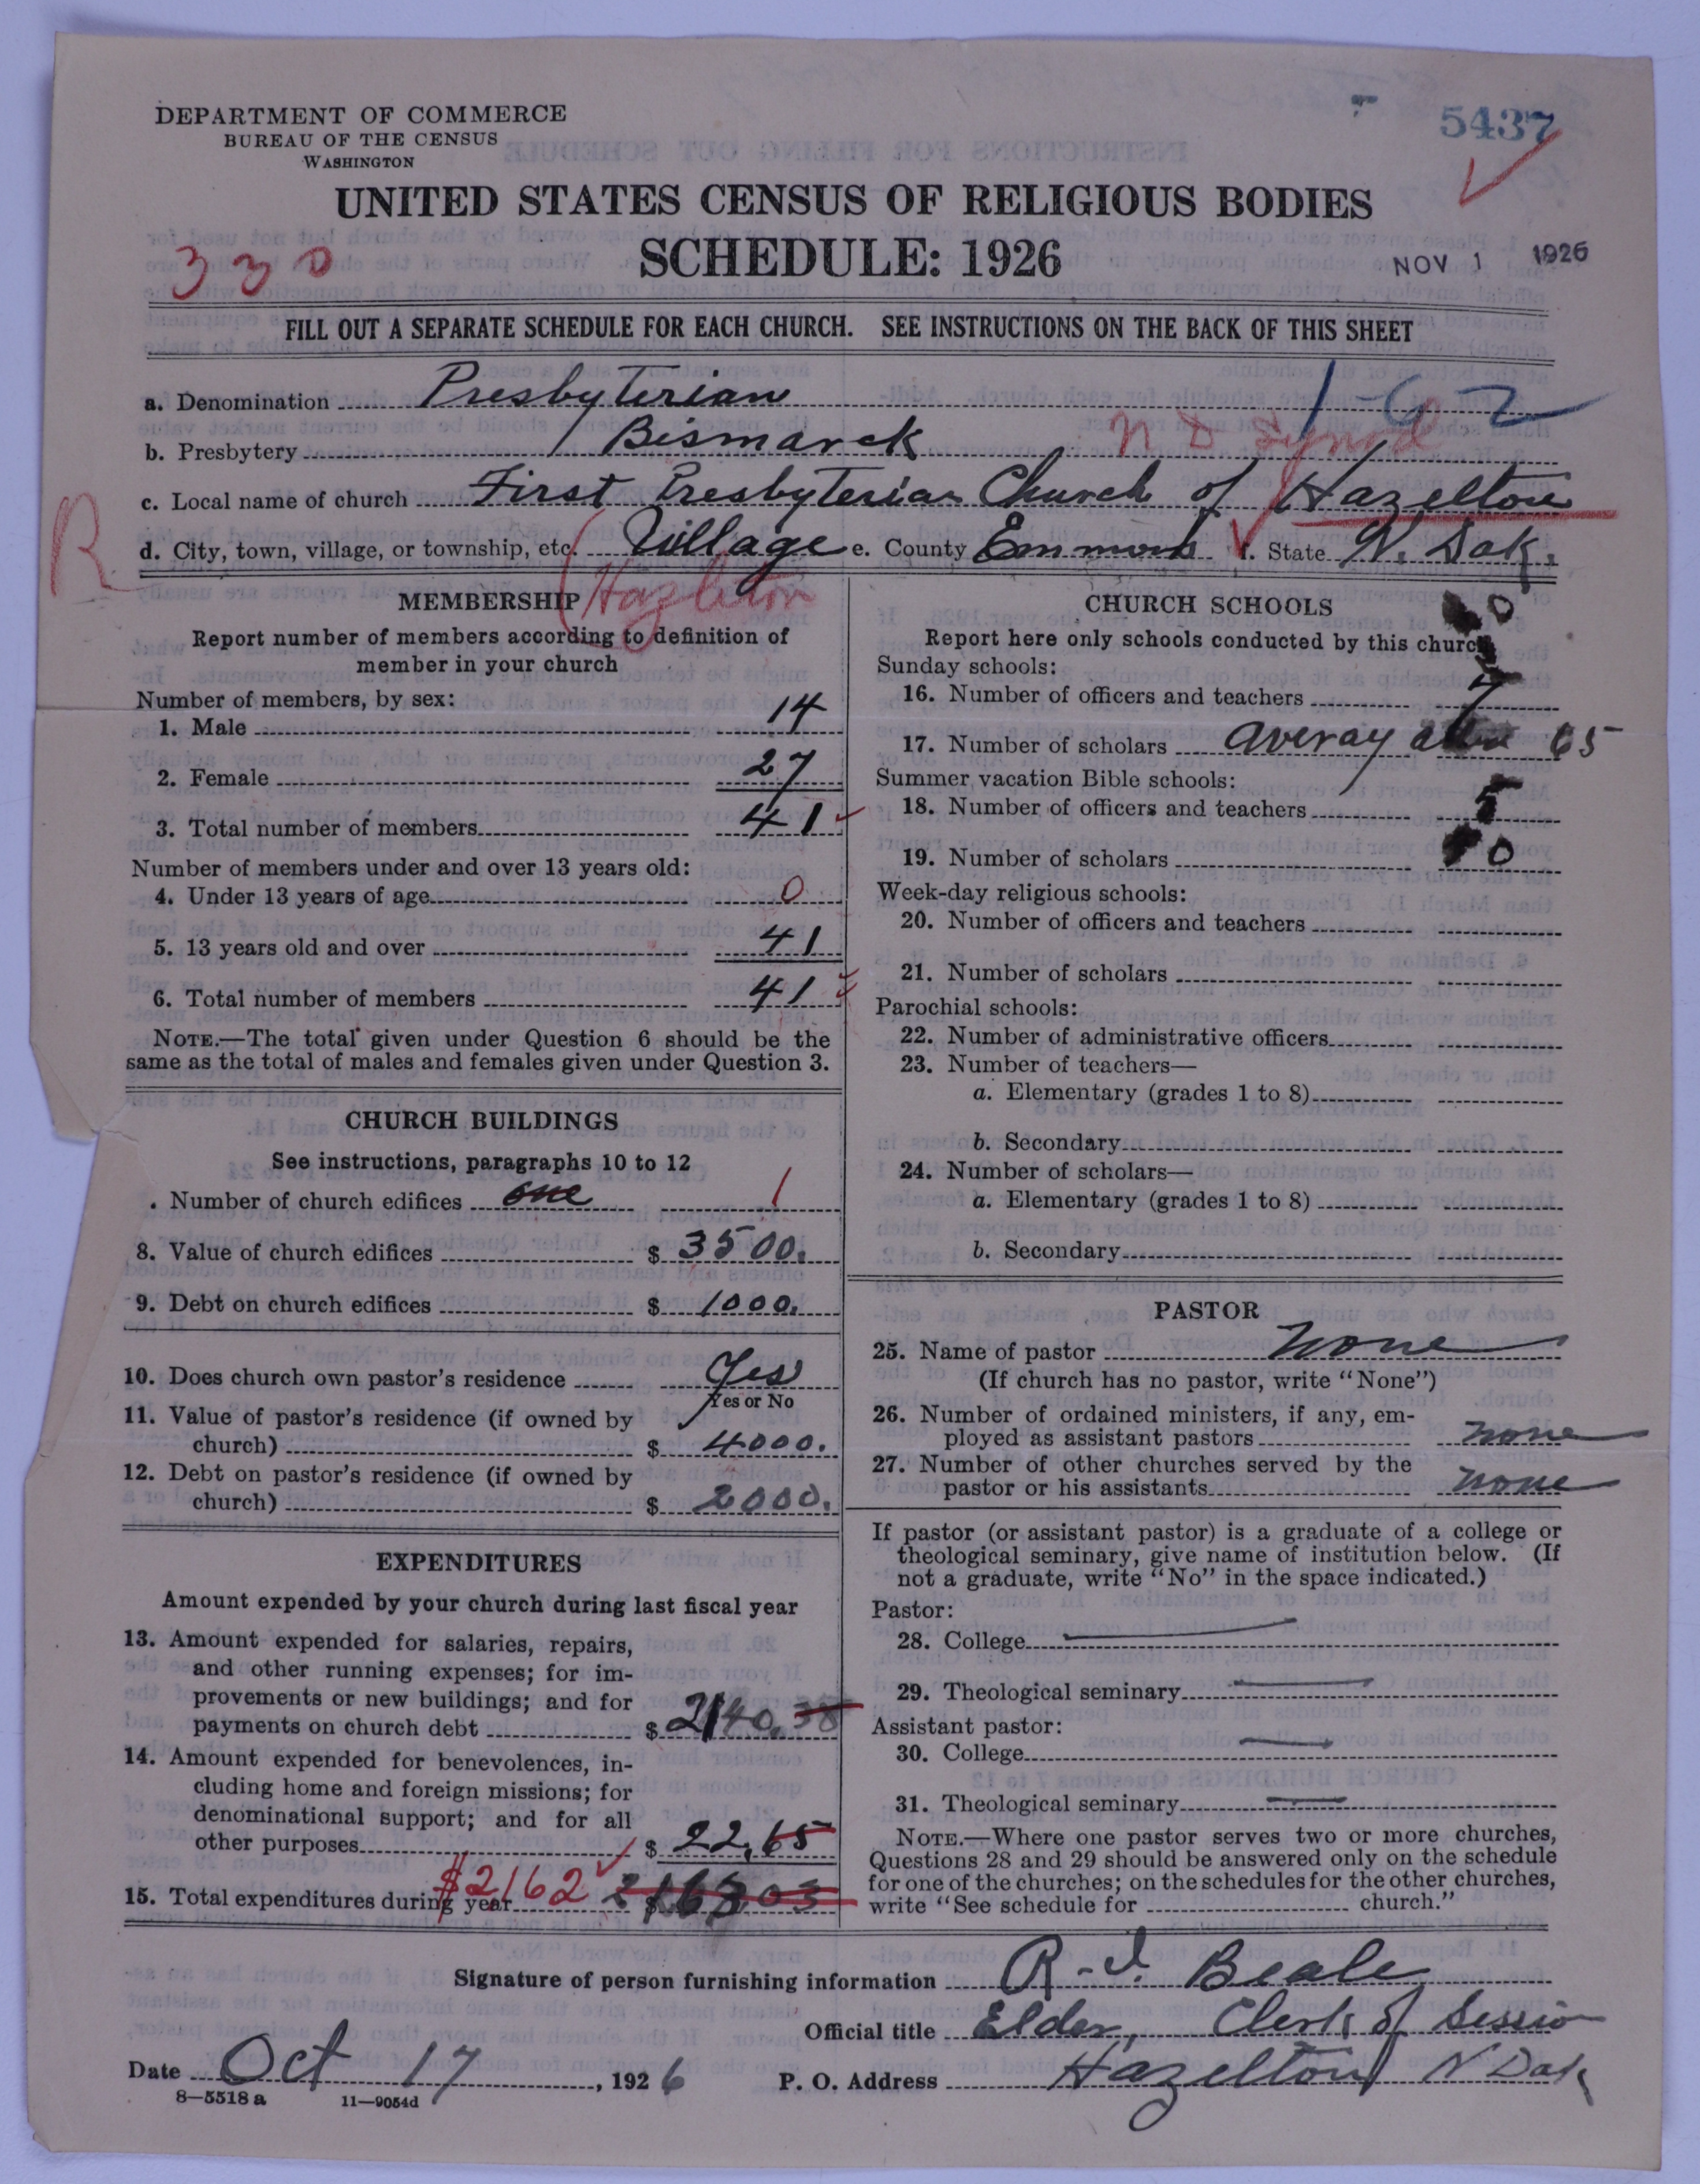 DEPARTMENT OF COMMERCE
BUREAU OF THE CENSUS
WASHINGTON
5437
UNITED STATES CENSUS OF RELIGIOUS BODIES
SCHEDULE: 1926
330
NOV 1 1926
FILL OUT A SEPARATE SCHEDULE FOR EACH CHURCH. SEE INSTRUCTIONS ON THE BACK OF THIS SHEET
a. Denomination Presbyterian 1-62
b. Presbytery Bismarck N D Synod
c. Local name of church First Presbyterian Church of Hazelton
R
d. City, town, village, or township, etc. Village e. County Emmons f. State N. Dak.
(Hazelton
MEMBERSHIP
Report number of members according to definition of
member in your church
Number of members, by sex:
1. Male 14
2. Female 27
3. Total number of members 41
Number of members under and over 13 years old:
4. Under 13 years of age 0
5. 13 years old and over 41
6. Total number of members 41
NOTE.—The total given under Question 6 should be the
same as the total of males and females given under Question 3.
CHURCH BUILDINGS
See instructions, paragraphs 10 to 12
. Number of church edifices one 1
8. Value of church edifices $ 3500.
9. Debt on church edifices $ 1000.
10. Does church own pastor's residence Yes
Yes or No
11. Value of pastor's residence (if owned by
church) $ 4000.
12. Debt on pastor's residence (if owned by
church) $ 2000.
EXPENDITURES
Amount expended by your church during last fiscal year
13. Amount expended for salaries, repairs,
and other running expenses; for im-
provements or new buildings; and for
payments on church debt $ 2140.38
14. Amount expended for benevolences, in-
cluding home and foreign missions; for
denominational support; and for all
other purposes $ 22.65
15. Total expenditures during year $2162 $ 2163.03
CHURCH SCHOOLS
0
Report here only schools conducted by this church
Sunday schools:
16. Number of officers and teachers 7
17. Number of scholars averay 65
Summer vacation Bible schools:
18. Number of officers and teachers 5
19. Number of scholars 0
Week-day religious schools:
20. Number of officers and teachers
21. Number of scholars
Parochial schools:
22. Number of administrative officers
23. Number of teachers—
a. Elementary (grades 1 to 8)
b. Secondary
24. Number of scholars—
a. Elementary (grades 1 to 8)
b. Secondary
PASTOR
25. Name of pastor none
(If church has no pastor, write "None")
26. Number of ordained ministers, if any, em-
ployed as assistant pastors none
27. Number of other churches served by the
pastor or his assistants none
If pastor (or assistant pastor) is a graduate of a college or
theological seminary, give name of institution below. (If
not a graduate, write "No" in the space indicated.)
Pastor:
28. College
29. Theological seminary
Assistant pastor:
30. College
31. Theological seminary
NOTE.—Where one pastor serves two or more churches,
Questions 28 and 29 should be answered only on the schedule
for one of the churches; on the schedules for the other churches,
write "See schedule for church."
Signature of person furnishing information R. I. Beale
Official title Elder, Clerk of Session
Date Oct 17, 1926 P. O. Address Hazelton N Dak
8—5518 a 11—9054d